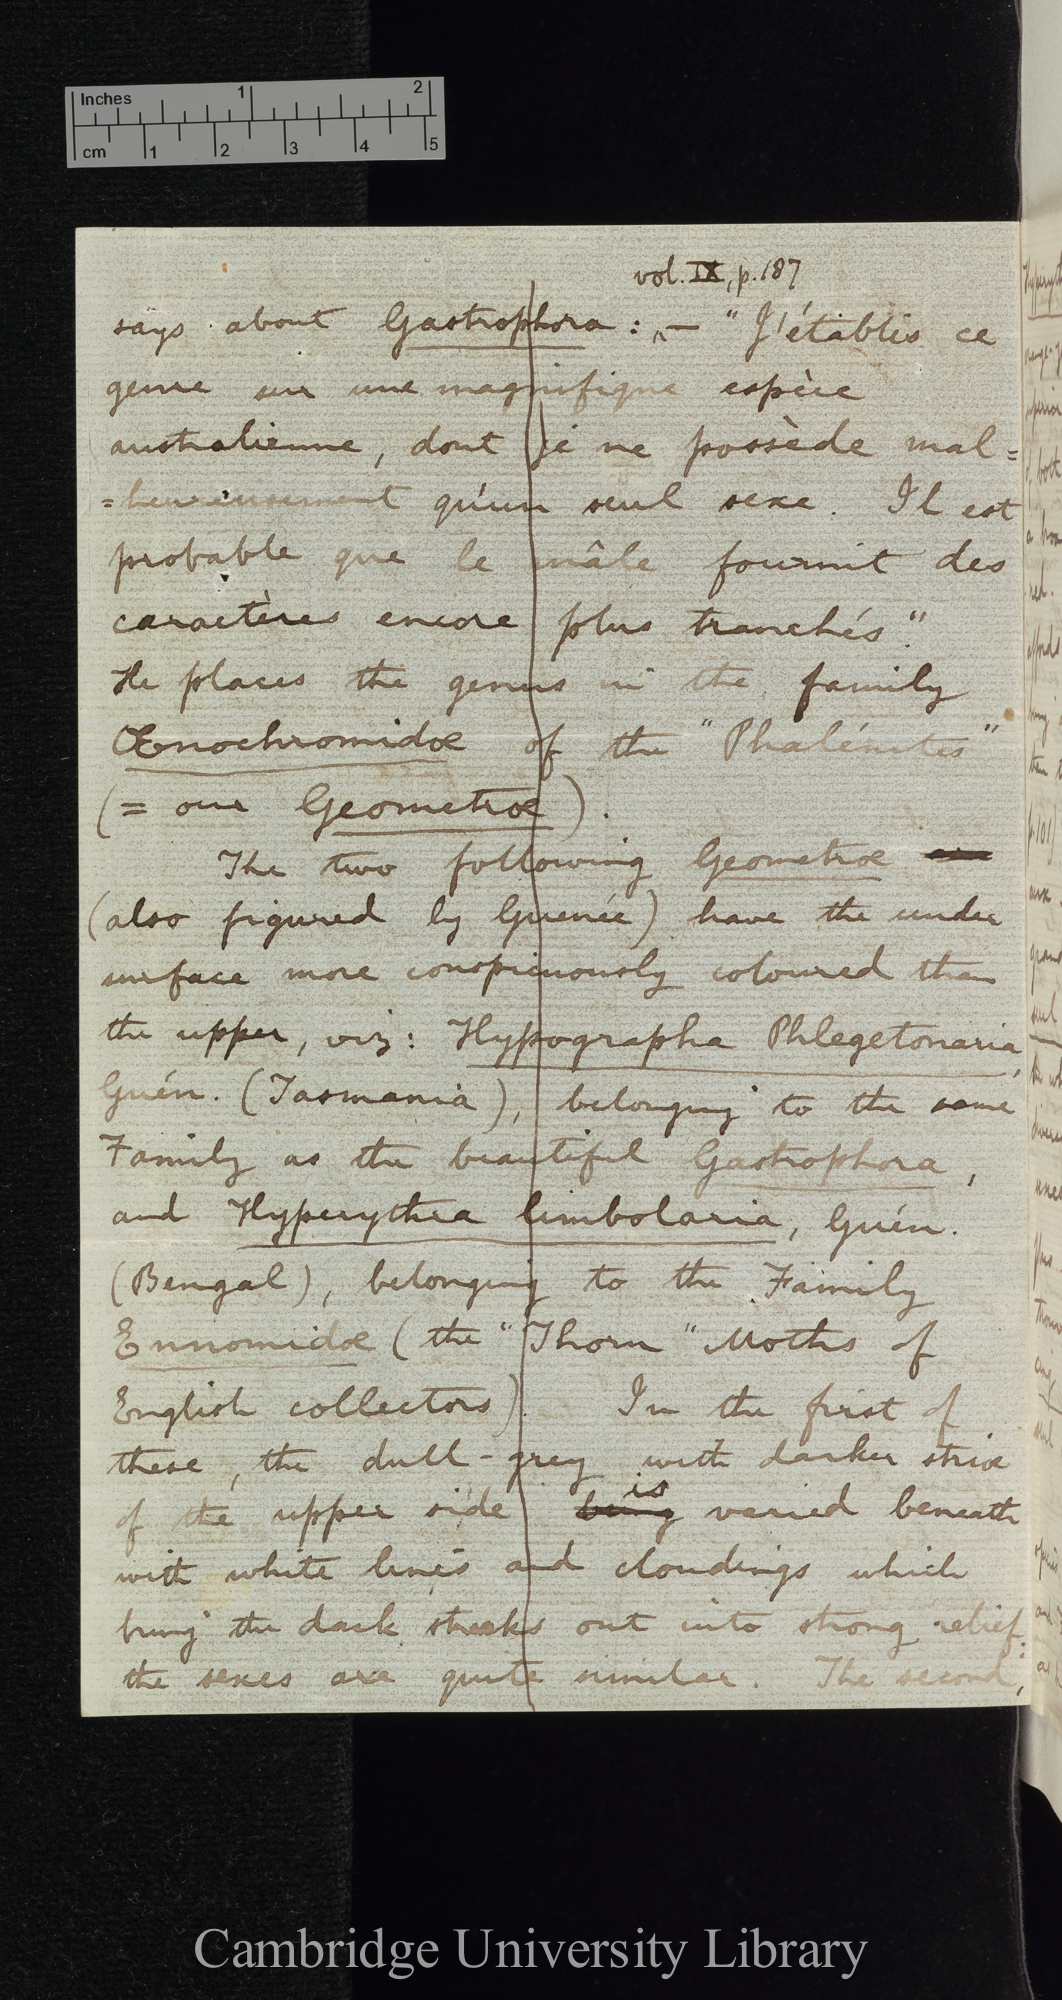 Inches 1 2
cm 1 2 3 4 5
vol. IX, p. 187
says about Gastrophora : ‸ — " J'établis ce
genre sur une magnifique espèce
australienne, dont je ne possède mal=
=heureusement qu'un seul sexe. Il est
probable que le mâle fournit des
caractères encore plus tranchés".
He places the genus in the family
Œnochromidæ of the "Phalénites"
(= our Geometræ).
The two following Geometræ
(also figured by Guenée) have the under
surface more conspicuously coloured than
the upper, viz: Hypographa Phlegetonaria,
Guén. (Tasmania), belonging to the same
Family as the beautiful Gastrophora,
and Hyperythra limbolaria, Guén.
(Bengal), belonging to the Family
Ennomidæ (the "Thorn" Moths of
English collectors). In the first of
these, the dull-grey with darker striæ
is
of the upper side being varied beneath
with white lines and cloudings which
bring the dark streaks out into strong relief:
the sexes are quite similar. The second,
Cambridge University Library